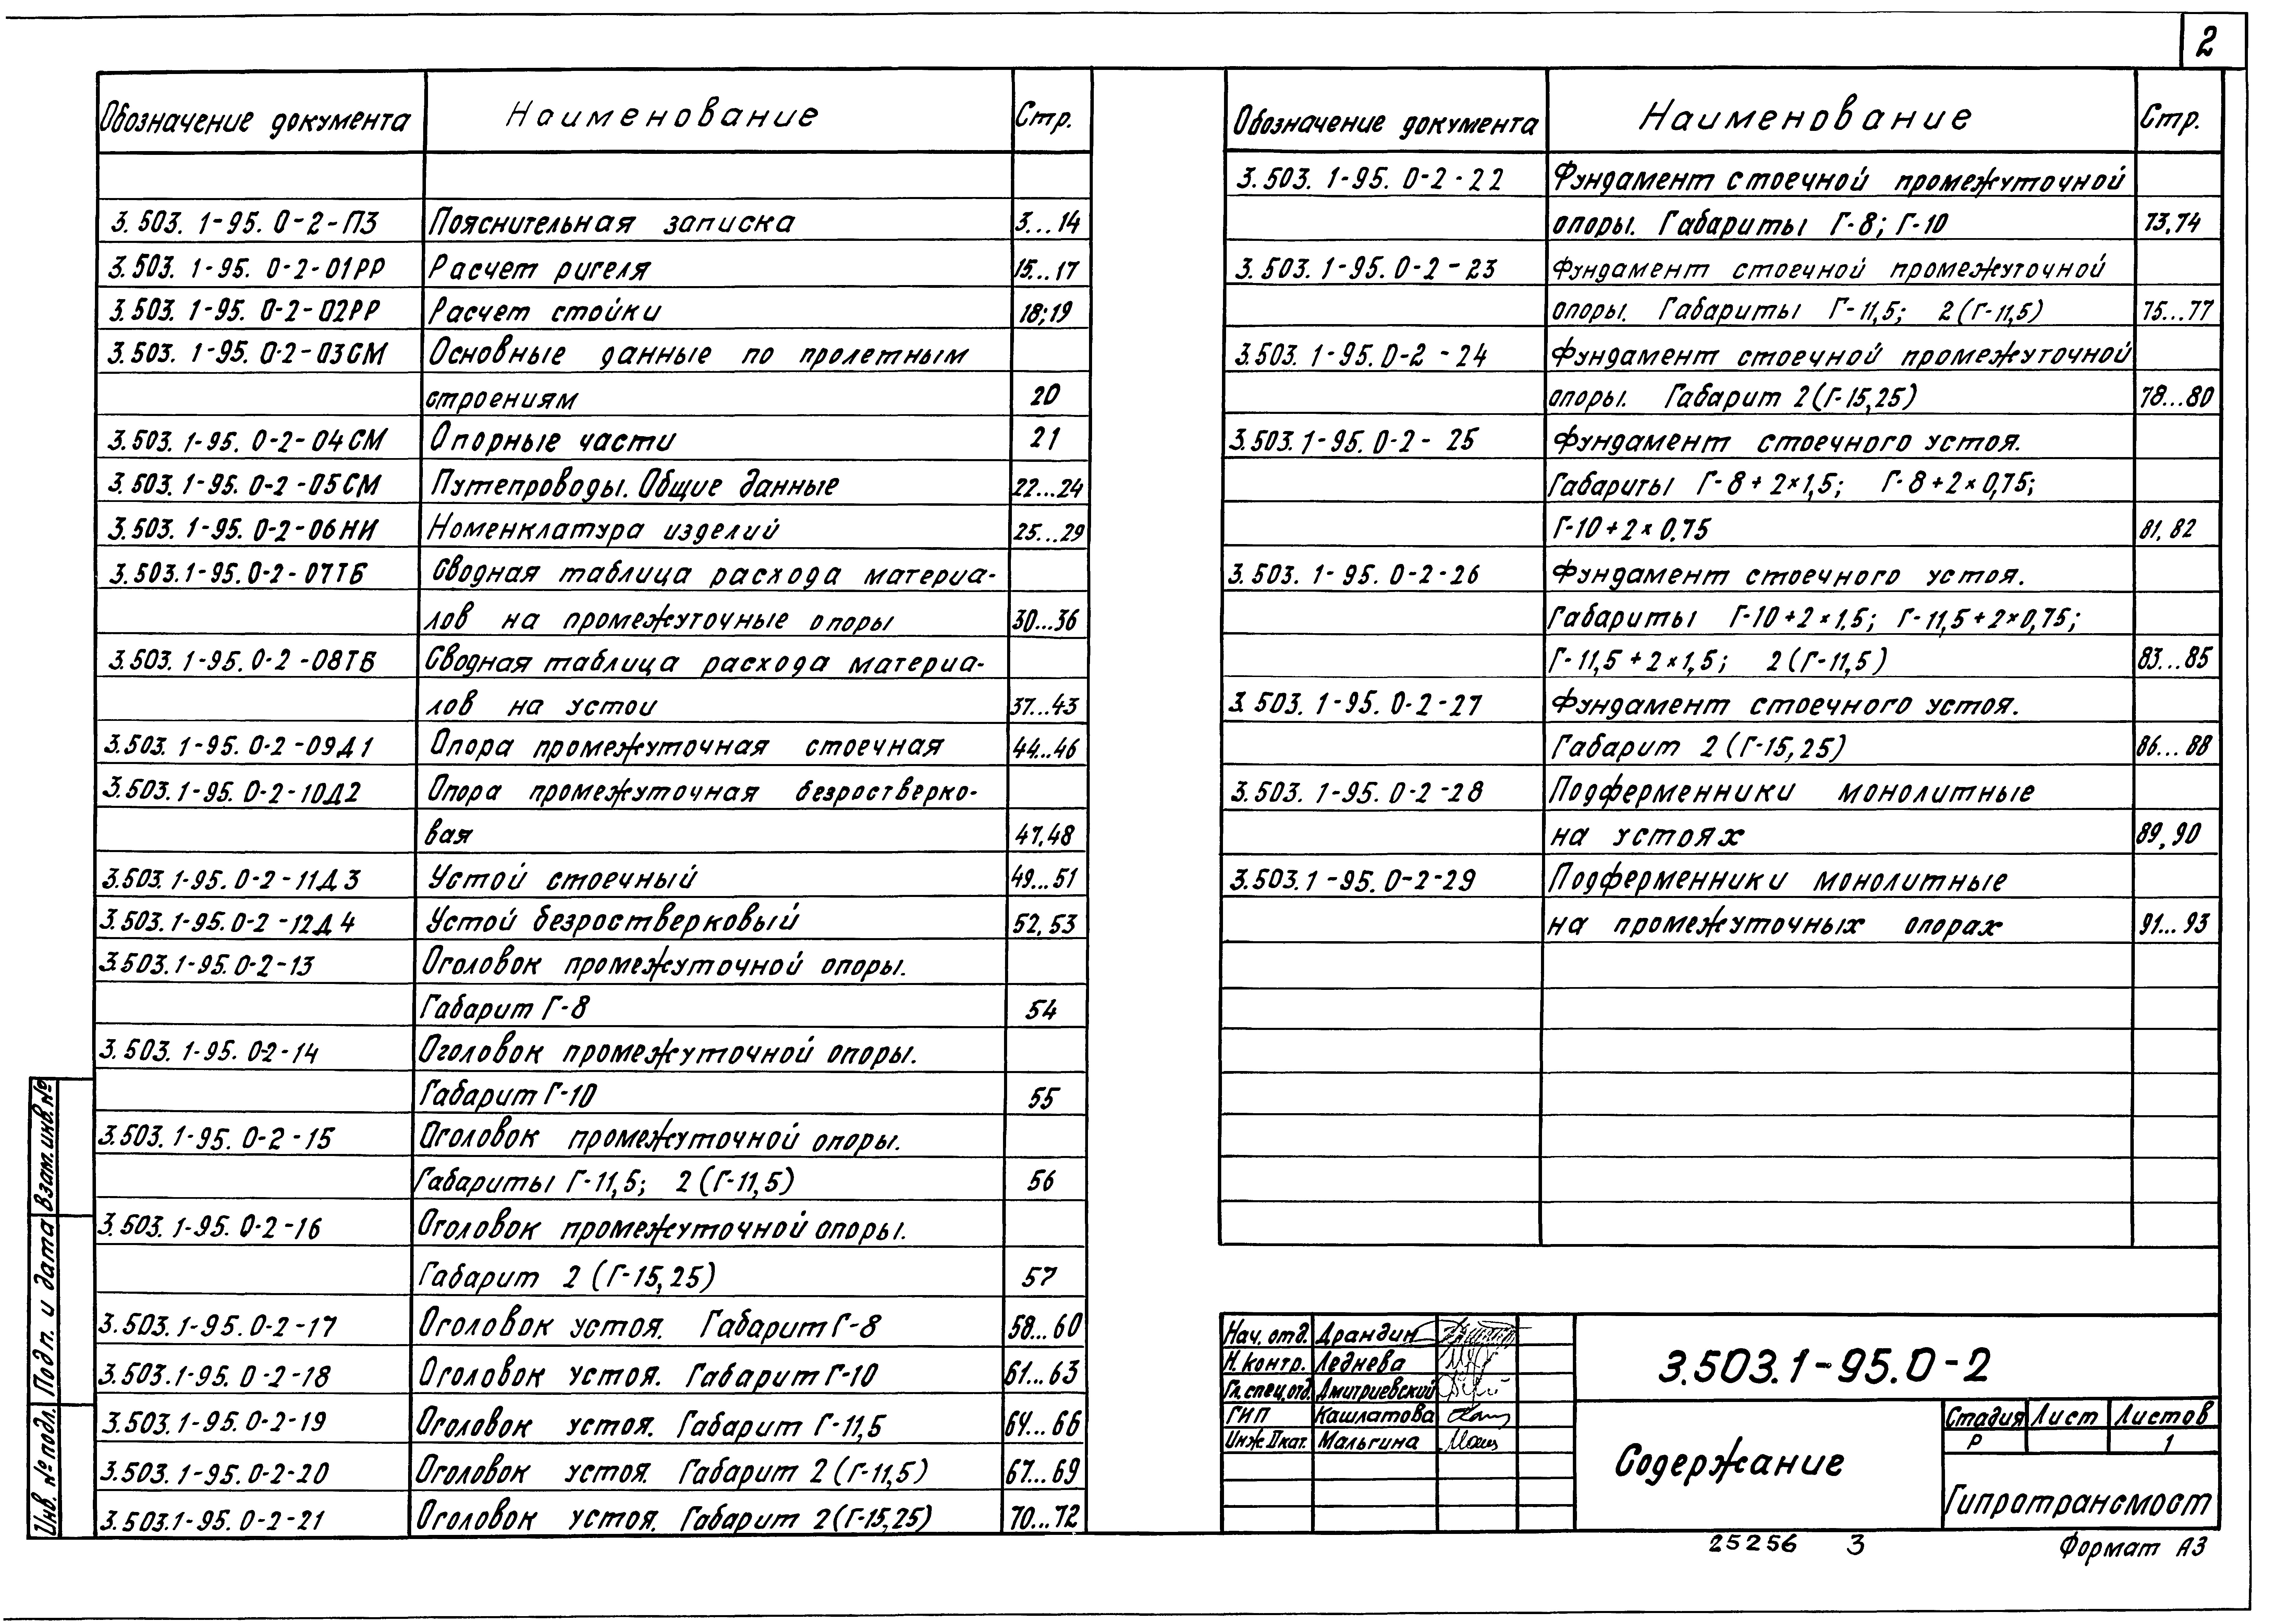 2
Обозначение документа Наименование Стр.
3.503.1-95.0-2-ПЗ Пояснительная записка 3...14
3.503.1-95.0-2-01РР Расчет ригеля 15...17
3.503.1-95.0-2-02РР Расчет стойки 18;19
3.503.1-95.0-2-03СМ Основные данные по пролетным
строениям 20
3.503.1-95.0-2-04СМ Опорные части 21
3.503.1-95.0-2-05СМ Путепроводы. Общие данные 22...24
3.503.1-95.0-2-06НИ Номенклатура изделий 25...29
3.503.1-95.0-2-07ТБ Сводная таблица расхода материа-
лов на промежуточные опоры 30...36
3.503.1-95.0-2-08ТБ Сводная таблица расхода материа-
лов на устои 37...43
3.503.1-95.0-2-09Д1 Опора промежуточная стоечная 44...46
3.503.1-95.0-2-10Д2 Опора промежуточная безростверко-
вая 47,48
3.503.1-95.0-2-11Д3 Устой стоечный 49...51
3.503.1-95.0-2-12Д4 Устой безростверковый 52,53
3.503.1-95.0-2-13 Оголовок промежуточной опоры.
Габарит Г-8 54
3.503.1-95.0-2-14 Оголовок промежуточной опоры.
Габарит Г-10 55
3.503.1-95.0-2-15 Оголовок промежуточной опоры.
Габариты Г-11,5; 2(Г-11,5) 56
3.503.1-95.0-2-16 Оголовок промежуточной опоры.
Габарит 2(Г-15,25) 57
3.503.1-95.0-2-17 Оголовок устоя. Габарит Г-8 58...60
3.503.1-95.0-2-18 Оголовок устоя. Габарит Г-10 61...63
3.503.1-95.0-2-19 Оголовок устоя. Габарит Г-11,5 64...66
3.503.1-95.0-2-20 Оголовок устоя. Габарит 2(Г-11,5) 67...69
3.503.1-95.0-2-21 Оголовок устоя. Габарит 2(Г-15,25) 70...72
Обозначение документа Наименование Стр.
3.503.1-95.0-2-22 Фундамент стоечной промежуточной
опоры. Габариты Г-8; Г-10 73,74
3.503.1-95.0-2-23 Фундамент стоечной промежуточной
опоры. Габариты Г-11,5; 2(Г-11,5) 75...77
3.503.1-95.0-2-24 Фундамент стоечной промежуточной
опоры. Габарит 2(Г-15,25) 78...80
3.503.1-95.0-2-25 Фундамент стоечного устоя.
Габариты Г-8+2×1,5; Г-8+2×0,75;
Г-10+2×0,75 81,82
3.503.1-95.0-2-26 Фундамент стоечного устоя.
Габариты Г-10+2×1,5; Г-11,5+2×0,75;
Г-11,5+2×1,5; 2(Г-11,5) 83...85
3.503.1-95.0-2-27 Фундамент стоечного устоя.
Габарит 2(Г-15,25) 86...88
3.503.1-95.0-2-28 Подферменники монолитные
на устоях 89,90
3.503.1-95.0-2-29 Подферменники монолитные
на промежуточных опорах 91...93
Инв. № подл. Подп. и дата Взам. инв. №
Нач. отд. Драндин
Н. контр. Леднева
Гл. спец. отд. Дмитриевский
ГИП Кашлатова
Инж II кат. Мальгина
3.503.1-95.0-2
Содержание
Стадия Лист Листов
Р 1
Гипротрансмост
25256 3 Формат А3